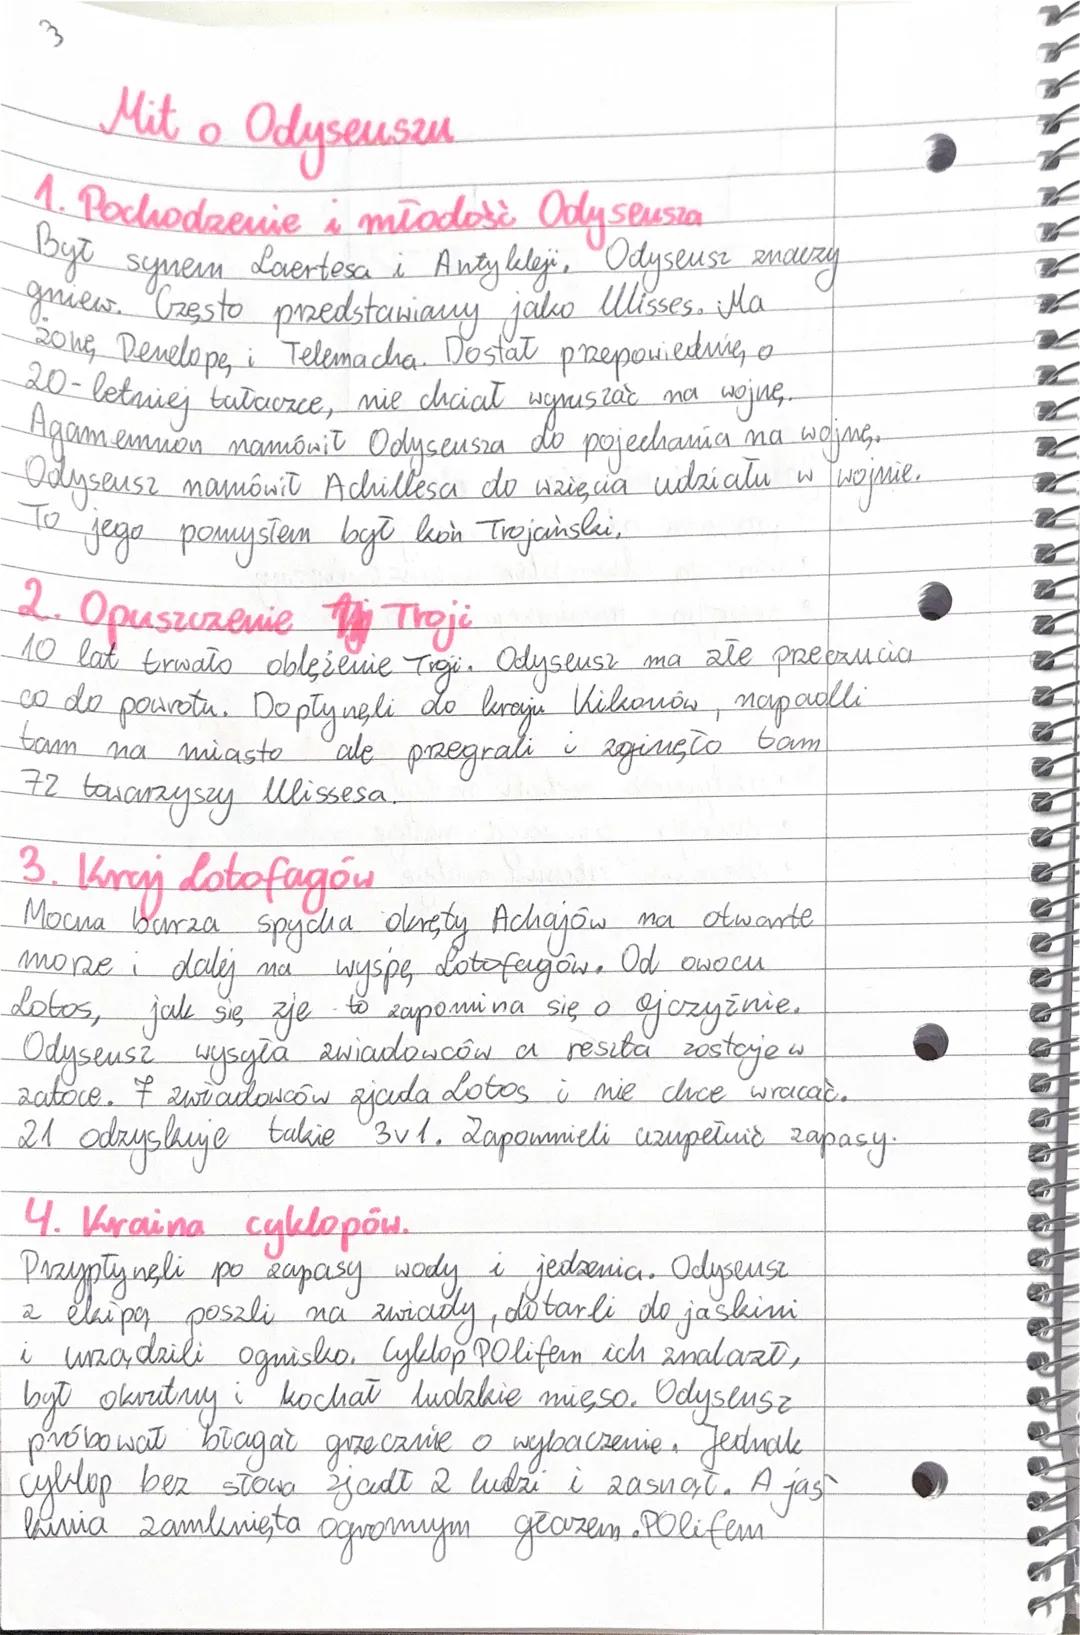 3
Mit o Odyseuszu
1. Pochodzenie i młodość Odyseusza
Był synem Laertesa i Antyklei. Odyseusz znaczy
gniew. Często przedstawiany jako Ulisses. Ma
żonę Penelopę i Telemacha. Dostał przepowiednię o
20-letniej tułaczce, nie chciał wyruszać na wojnę.
Agamemnon namówił Odyseusza do pojechania na wojnę.
Odyseusz namówił Achillesa do wzięcia udziału w wojnie.
To jego pomysłem był koń Trojański.
2. Opuszczenie Troji
10 lat trwało oblężenie Troji. Odyseusz ma złe przeczucia
co do powrotu. Dopłynęli do kraju Kikonów, napadli
tam na miasto ale przegrali i zginęło tam
72 towarzyszy Ulissesa.
3. Kraj Lotofagów
Mocna burza spycha okręty Achajów na otwarte
morze i dalej na wyspę Lotofagów. Od owocu
Lotos, jak się zje to zapomina się o ojczyźnie.
Odyseusz wysyła zwiadowców a reszta zostaje w
zatoce. 7 zwiadowców zjada Lotos i nie chce wracać.
21 odzyskuje takie 3v1. Zapomnieli uzupełnić zapasy.
4. Kraina cyklopów.
Przypłynęli po zapasy wody i jedzenia. Odyseusz
z ekipą poszli na zwiady, dotarli do jaskini
i urządzili ognisko. Cyklop POlifem ich znalazł,
był okrutny i kochał ludzkie mięso. Odyseusz
próbował błagać grzecznie o wybaczenie. Jednak
cyklop bez słowa zjadł 2 ludzi i zasnął. A jas-
kinia zamknięta ogromnym głazem. POlifem